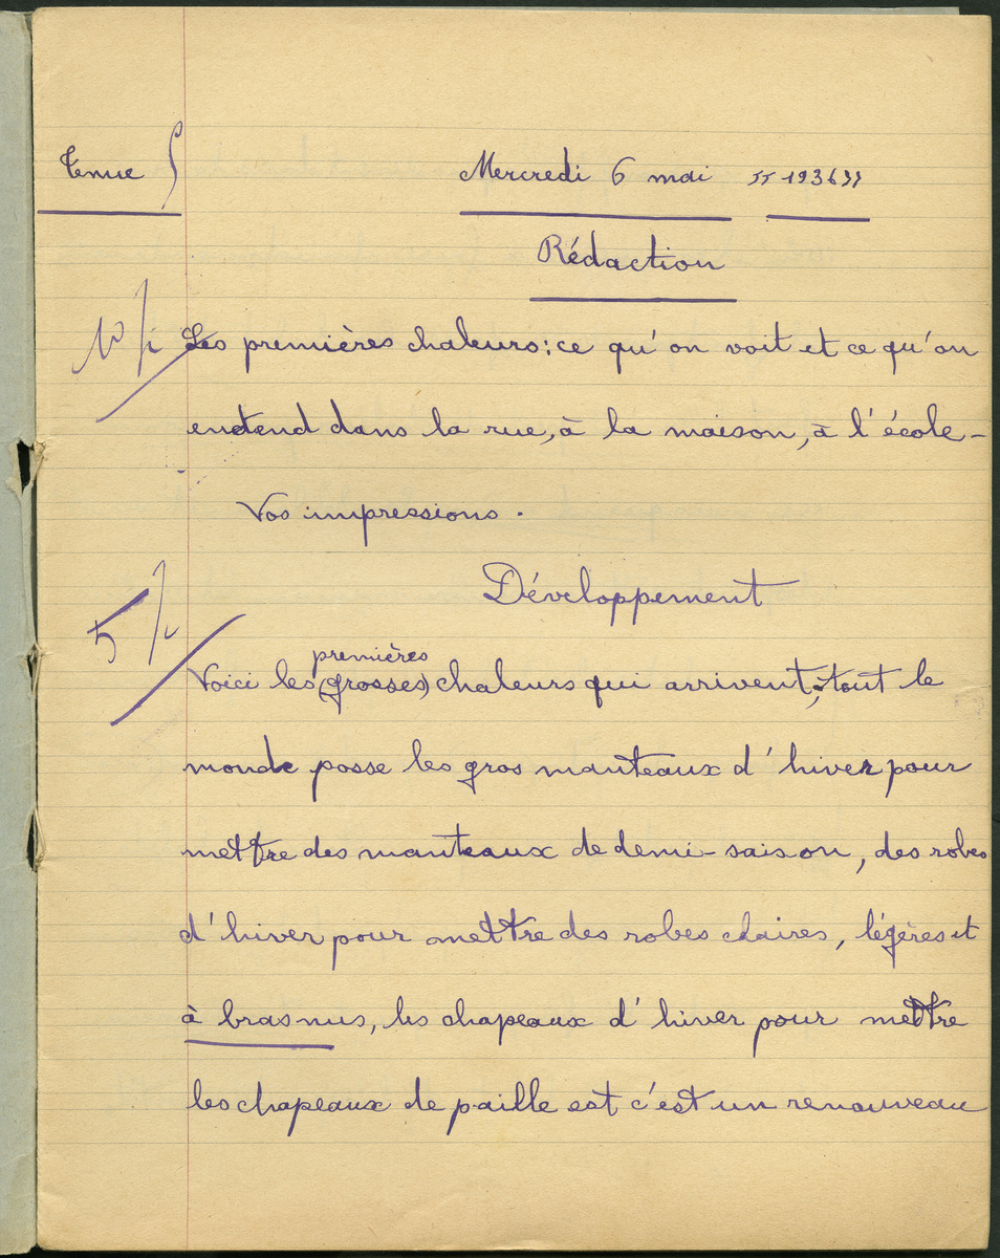 Tenue 5
Mercredi 6 mai "1936"
Rédaction
10 Les premières chaleurs : ce qu'on voit et ce qu'on
entend dans la rue, à la maison, à l'école -
Vos impressions.
Développement
5
premières
Voici les (grosses) chaleurs qui arrivent, tout le
monde posse les gros manteaux d'hiver pour
mettre des manteaux de demi-saison, des robes
d'hiver pour mettre des robes claires, légères et
à bras nus, les chapeaux d'hiver pour mettre
les chapeaux de paille est c'est un renouveau